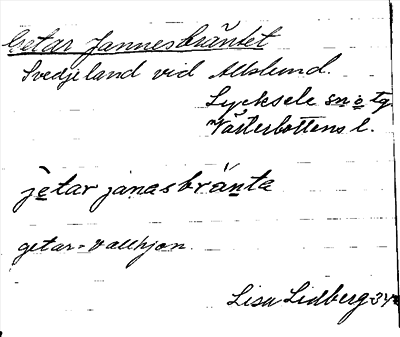 Getar Jannesbräntet
Svedjeland vid Alslund.
Lycksele sn o tg
Västerbottens l.
jetar janasbränta
getar = vallhjon
Lisa Lidberg 34